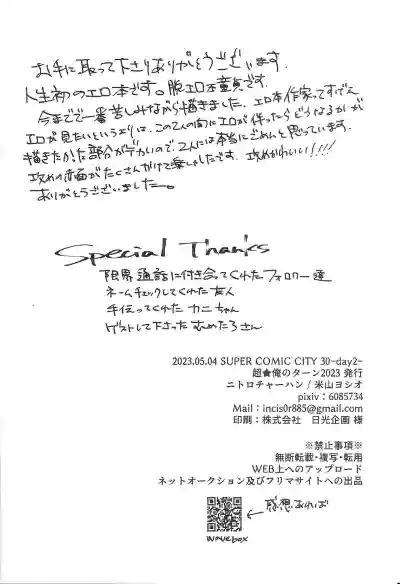 お手に取って下さりありがとうございます。
人生初のエロ本です。脱エロ本童貞です。
今までで一番苦しみながら描きました。エロ本作家ってすげえ
エロが見たいというよりは、この2人の間にエロが伴ったらどうなるかが
描きたかた部分がデカいので、2人には本当にごめんと思っています。
攻めの赤面がたくさんかけて楽しかたです。攻めかわいい!!!!
ありがとうございました。
Special Thanks
限界通話に付き合ってくれたフォロワー達
ネームチェックしてくれた友人
手伝ってくれたカニちゃん
ゲストして下さったむめたろさん
2023.05.04 SUPER COMIC CITY 30-day2-
超★俺のターン2023 発行
ニトロチャーハン / 米山ヨシオ
pixiv:6085734
Mail:incis0r885@gmail.com
印刷:株式会社 日光企画 様
※禁止事項※
無断転載・複写・転用
WEB上へのアップロード
ネットオークション及びフリマサイトへの出品
←感想あれば
wavebox